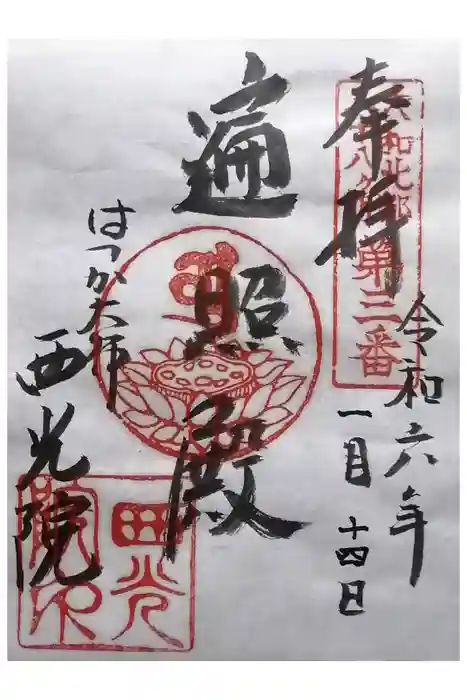 奉拝
大和北部
八十八ヶ所第三番
令和六年
一月十四日
遍照殿
はつか大師
西光院
西光
院印